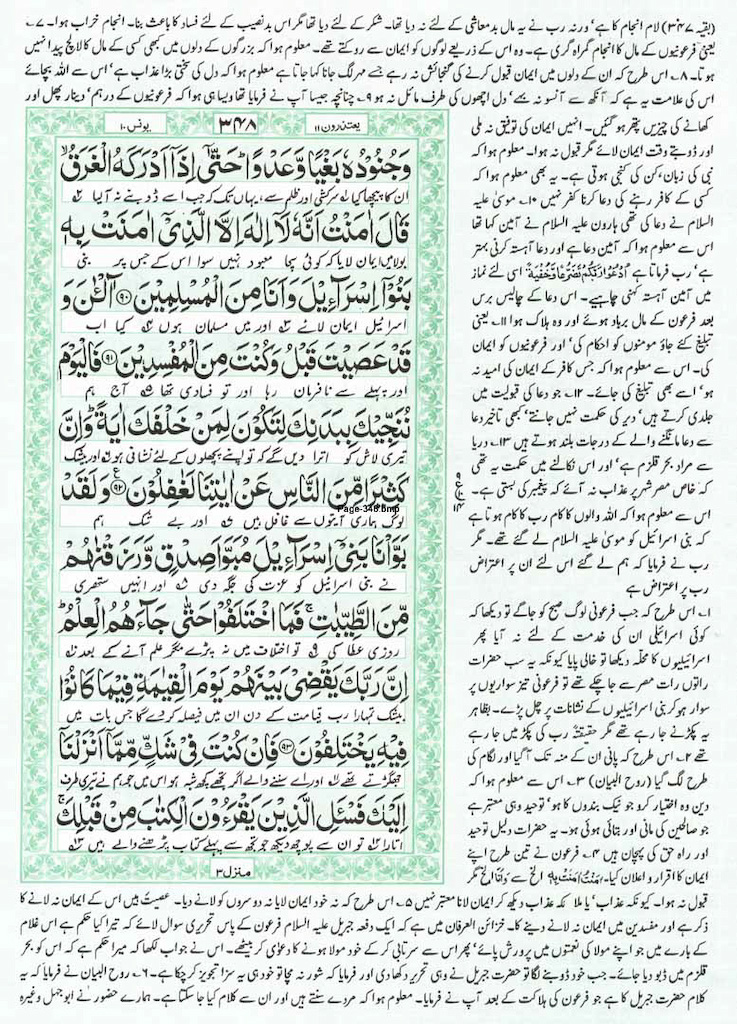 (بقیہ ۳۴۷) لام انجام کا ہے' ورنہ رب نے یہ مال بدمعاشی کے لئے نہ دیا تھا۔ شکر کے لئے دیا تھا مگر اس بدنصیب کے لئے فساد کا باعث بنا۔ انجام خراب ہوا۔ ۷۔
یعنی فرعونیوں کے مال کا انجام گمراہ گری ہے۔ وہ اس کے ذریعے لوگوں کو ایمان سے روکتے تھے۔ معلوم ہوا کہ بزرگوں کے دلوں میں کبھی کسی کے مال کا لالچ پیدا نہیں
ہوتا۔ ۸۔ اس طرح کہ ان کے دلوں میں ایمان قبول کرنے کی گنجائش نہ رہے جسے مہر لگ جانا کہا جاتا ہے معلوم ہوا کہ دل کی سختی بڑا عذاب ہے' اس سے اللہ بچائے
اس کی علامت یہ ہے کہ آنکھ سے آنسو نہ بہے' دل اچھوں کی طرف مائل نہ ہو ۹۔ چنانچہ جیسا آپ نے فرمایا تھا ویسا ہی ہوا کہ فرعونیوں کے درہم' دینار پھل اور
کھانے کی چیزیں پتھر ہو گئیں۔ انہیں ایمان کی توفیق نہ ملی
اور ڈوبتے وقت ایمان لائے مگر قبول نہ ہوا۔ معلوم ہوا کہ
نبی کی زبان' کن کی کنجی ہوتی ہے۔ یہ بھی معلوم ہوا کہ
کسی کے کافر رہنے کی دعا کرنا کفر نہیں ۱۰۔ موسیٰ علیہ
السلام نے دعا کی تھی ہارون علیہ السلام نے آمین کہا تھا
اس سے معلوم ہوا کہ آمین دعا ہے اور دعا آہستہ کرنی بہتر
ہے' رب فرماتا ہے اُدْعُوْا رَبَّكُمْ تَضَرُّعًا وَّخُفْيَةً اسی لئے نماز
میں آمین آہستہ کہنی چاہیے۔ اس دعا کے چالیس برس
بعد فرعون کے مال برباد ہوئے اور وہ ہلاک ہوا ۱۱۔ یعنی
تبلیغ کئے جاؤ مومنوں کو احکام کی' اور فرعونیوں کو ایمان
کی۔ اس سے معلوم ہوا کہ جس کافر کے ایمان کی امید نہ
ہو' اسے بھی تبلیغ کی جائے۔ ۱۲۔ جو دعا کی قبولیت میں
جلدی کرتے ہیں' دیر کی حکمت نہیں جانتے' کبھی تاخیر دعا
سے دعا مانگنے والے کے درجات بلند ہوتے ہیں ۱۳۔ دریا
سے مراد بحر قلزم ہے' اور اس نکالنے میں حکمت یہ تھی
کہ خاص مصر شہر پر عذاب نہ آئے کہ پیغمبر کی بستی ہے۔
اس سے معلوم ہوا کہ اللہ والوں کا کام رب کا کام ہوتا ہے
کہ بنی اسرائیل کو موسیٰ علیہ السلام لے گئے تھے۔ مگر
رب نے فرمایا کہ ہم لے گئے اس لئے ان پر اعتراض
رب پر اعتراض ہے
۱۔ اس طرح کہ جب فرعونی لوگ صبح کو جاگے تو دیکھا کہ
کوئی اسرائیلی ان کی خدمت کے لئے نہ آیا پھر
اسرائیلیوں کا محلہ دیکھا تو خالی پایا کیونکہ یہ سب حضرات
راتوں رات مصر سے جا چکے تھے تو فرعونی تیز سواریوں پر
سوار ہو کر بنی اسرائیلیوں کے نشانات پر چل پڑے۔ بظاہر
یہ پکڑنے جا رہے تھے مگر حقیقتہً رب کی پکڑ میں جا رہے
تھے ۲۔ اس طرح کہ پانی ان کے منہ تک آ گیا اور لگام کی
طرح لگ گیا (روح البیان) ۳۔ اس سے معلوم ہوا کہ
دین وہ اختیار کرو جو نیک بندوں کا ہو' توحید وہی معتبر ہے
جو صالحین کی مانی اور بتائی ہوئی ہو۔ یہ حضرات دلیل توحید
اور راہ حق کی پہچان ہیں ۴۔ فرعون نے تین طرح اپنے
ایمان کا اقرار و اعلان کیا۔ اٰمَنْتُ اٰمَنَتْ بِهٖ الخ سے وَاَنَا الخ مگر
یعتذرون ۱۱
۳۴۸
یونس ۱۰
وَجُنُوْدُهٗ بَغْيًا وَّعَدْوًا ؕ حَتّٰۤى اِذَاۤ اَدْرَكَهُ الْغَرَقُ ۙ
ان کا پیچھا کیا ۱؎ سرکشی اور ظلم سے، یہاں تک کہ جب اسے ڈوبنے نے آ لیا ۲؎
قَالَ اٰمَنْتُ اَنَّهٗ لَاۤ اِلٰهَ اِلَّا الَّذِيْۤ اٰمَنَتْ بِهٖ
بولا میں ایمان لایا کہ کوئی سچا معبود نہیں سوا اس کے جس پر بنی
بَنُوْۤا اِسْرَآءِيْلَ وَاَنَا مِنَ الْمُسْلِمِيْنَ ﴿۹۰﴾ آٰلْـٰٔنَ وَ
اسرائیل ایمان لائے ۳؎ اور میں مسلمان ہوں ۴؎ کیا اب
قَدْ عَصَيْتَ قَبْلُ وَكُنْتَ مِنَ الْمُفْسِدِيْنَ ﴿۹۱﴾ فَالْيَوْمَ
اور پہلے سے نافرمان رہا اور تو فسادی تھا ۵؎ آج ہم
نُنَجِّيْكَ بِبَدَنِكَ لِتَكُوْنَ لِمَنْ خَلْفَكَ اٰيَةً ؕ وَاِنَّ
تیری لاش کو اترا دیں گے کہ تو اپنے پچھلوں کے لئے نشانی ہو ۶؎ اور بیشک
كَثِيْرًا مِّنَ النَّاسِ عَنْ اٰيٰتِنَا لَغٰفِلُوْنَ ﴿۹۲﴾ وَلَقَدْ
Page-348.bmp
لوگ ہماری آیتوں سے غافل ہیں ۷؎ اور بے شک ہم
بَوَّاْنَا بَنِيْۤ اِسْرَآءِيْلَ مُبَوَّاَ صِدْقٍ وَّرَزَقْنٰهُمْ
نے بنی اسرائیل کو عزت کی جگہ دی ۸؎ اور انہیں ستھری
مِّنَ الطَّيِّبٰتِ ۚ فَمَا اخْتَلَفُوْا حَتّٰى جَآءَهُمُ الْعِلْمُ ؕ
روزی عطا کی ۹؎ تو اختلاف میں نہ پڑے مگر علم آنے کے بعد ۱۰؎
اِنَّ رَبَّكَ يَقْضِيْ بَيْنَهُمْ يَوْمَ الْقِيٰمَةِ فِيْمَا كَانُوْا
بیشک تمہارا رب قیامت کے دن ان میں فیصلہ کر دے گا جس بات میں
فِيْهِ يَخْتَلِفُوْنَ ﴿۹۳﴾ فَاِنْ كُنْتَ فِيْ شَكٍّ مِّمَّاۤ اَنْزَلْنَاۤ
جھگڑتے تھے اور اے سننے والے اگر تجھے کچھ شبہ ہو اس میں جو ہم نے تیری طرف
اِلَيْكَ فَسْـَٔلِ الَّذِيْنَ يَقْرَءُوْنَ الْكِتٰبَ مِنْ قَبْلِكَ ۚ
اتارا تو ان سے پوچھ دیکھ جو تجھ سے پہلے کتاب پڑھنے والے ہیں
منزل ۳
قبول نہ ہوا۔ کیونکہ عذاب' یا ملا ئکہ عذاب دیکھ کر ایمان لانا معتبر نہیں ۵۔ اس طرح کہ نہ خود ایمان لایا نہ دوسروں کو لانے دیا۔ عَصَيْتَ میں اس کے ایمان نہ لانے کا
ذکر ہے اور مفسدین میں ایمان نہ لانے دینے کا۔ خزائن العرفان میں ہے کہ ایک دفعہ جبریل علیہ السلام فرعون کے پاس تحریری سوال لائے کہ تیرا کیا حکم ہے اس غلام
کے بارے میں جو اپنے مولا کی نعمتوں میں پرورش پائے' پھر اس سے سرتابی کر کے خود مولا ہونے کا دعویٰ کر بیٹھے۔ اس نے جواب لکھا کہ میرا حکم ہے کہ اس کو بحر
قلزم میں ڈبو دیا جائے۔ جب خود ڈوبنے لگا تو حضرت جبریل نے وہی تحریر دکھا دی اور فرمایا کہ شور نہ مچا تو خود ہی یہ سزا تجویز کر چکا ہے۔ ۶۔ روح البیان نے فرمایا کہ یہ
کلام حضرت جبریل کا ہے جو فرعون کی ہلاکت کے بعد آپ نے فرمایا۔ معلوم ہوا کہ مردے سنتے ہیں اور ان سے کلام کیا جا سکتا ہے۔ ہمارے حضور نے ابوجہل وغیرہ